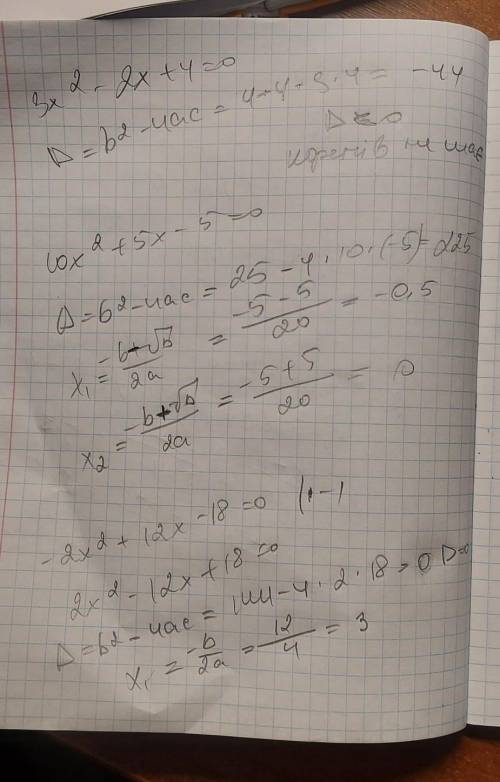 3x² - 2x + 4 = 0
D = b² - 4ac = 4 - 4 · 3 · 4 = -44
D < 0
коренів не має
10x² + 5x - 5 = 0
D = b² - 4ac = 25 - 4 · 10 · (-5) = 225
x₁ = (-b - √D)/2a = (-5 - 5)/20 = -0,5
x₂ = (-b + √D)/2a = (-5 + 5)/20 = 0
-2x² + 12x - 18 = 0 |· -1
2x² - 12x + 18 = 0
D = b² - 4ac = 144 - 4 · 2 · 18 = 0 D=0
x₁ = -b/2a = 12/4 = 3